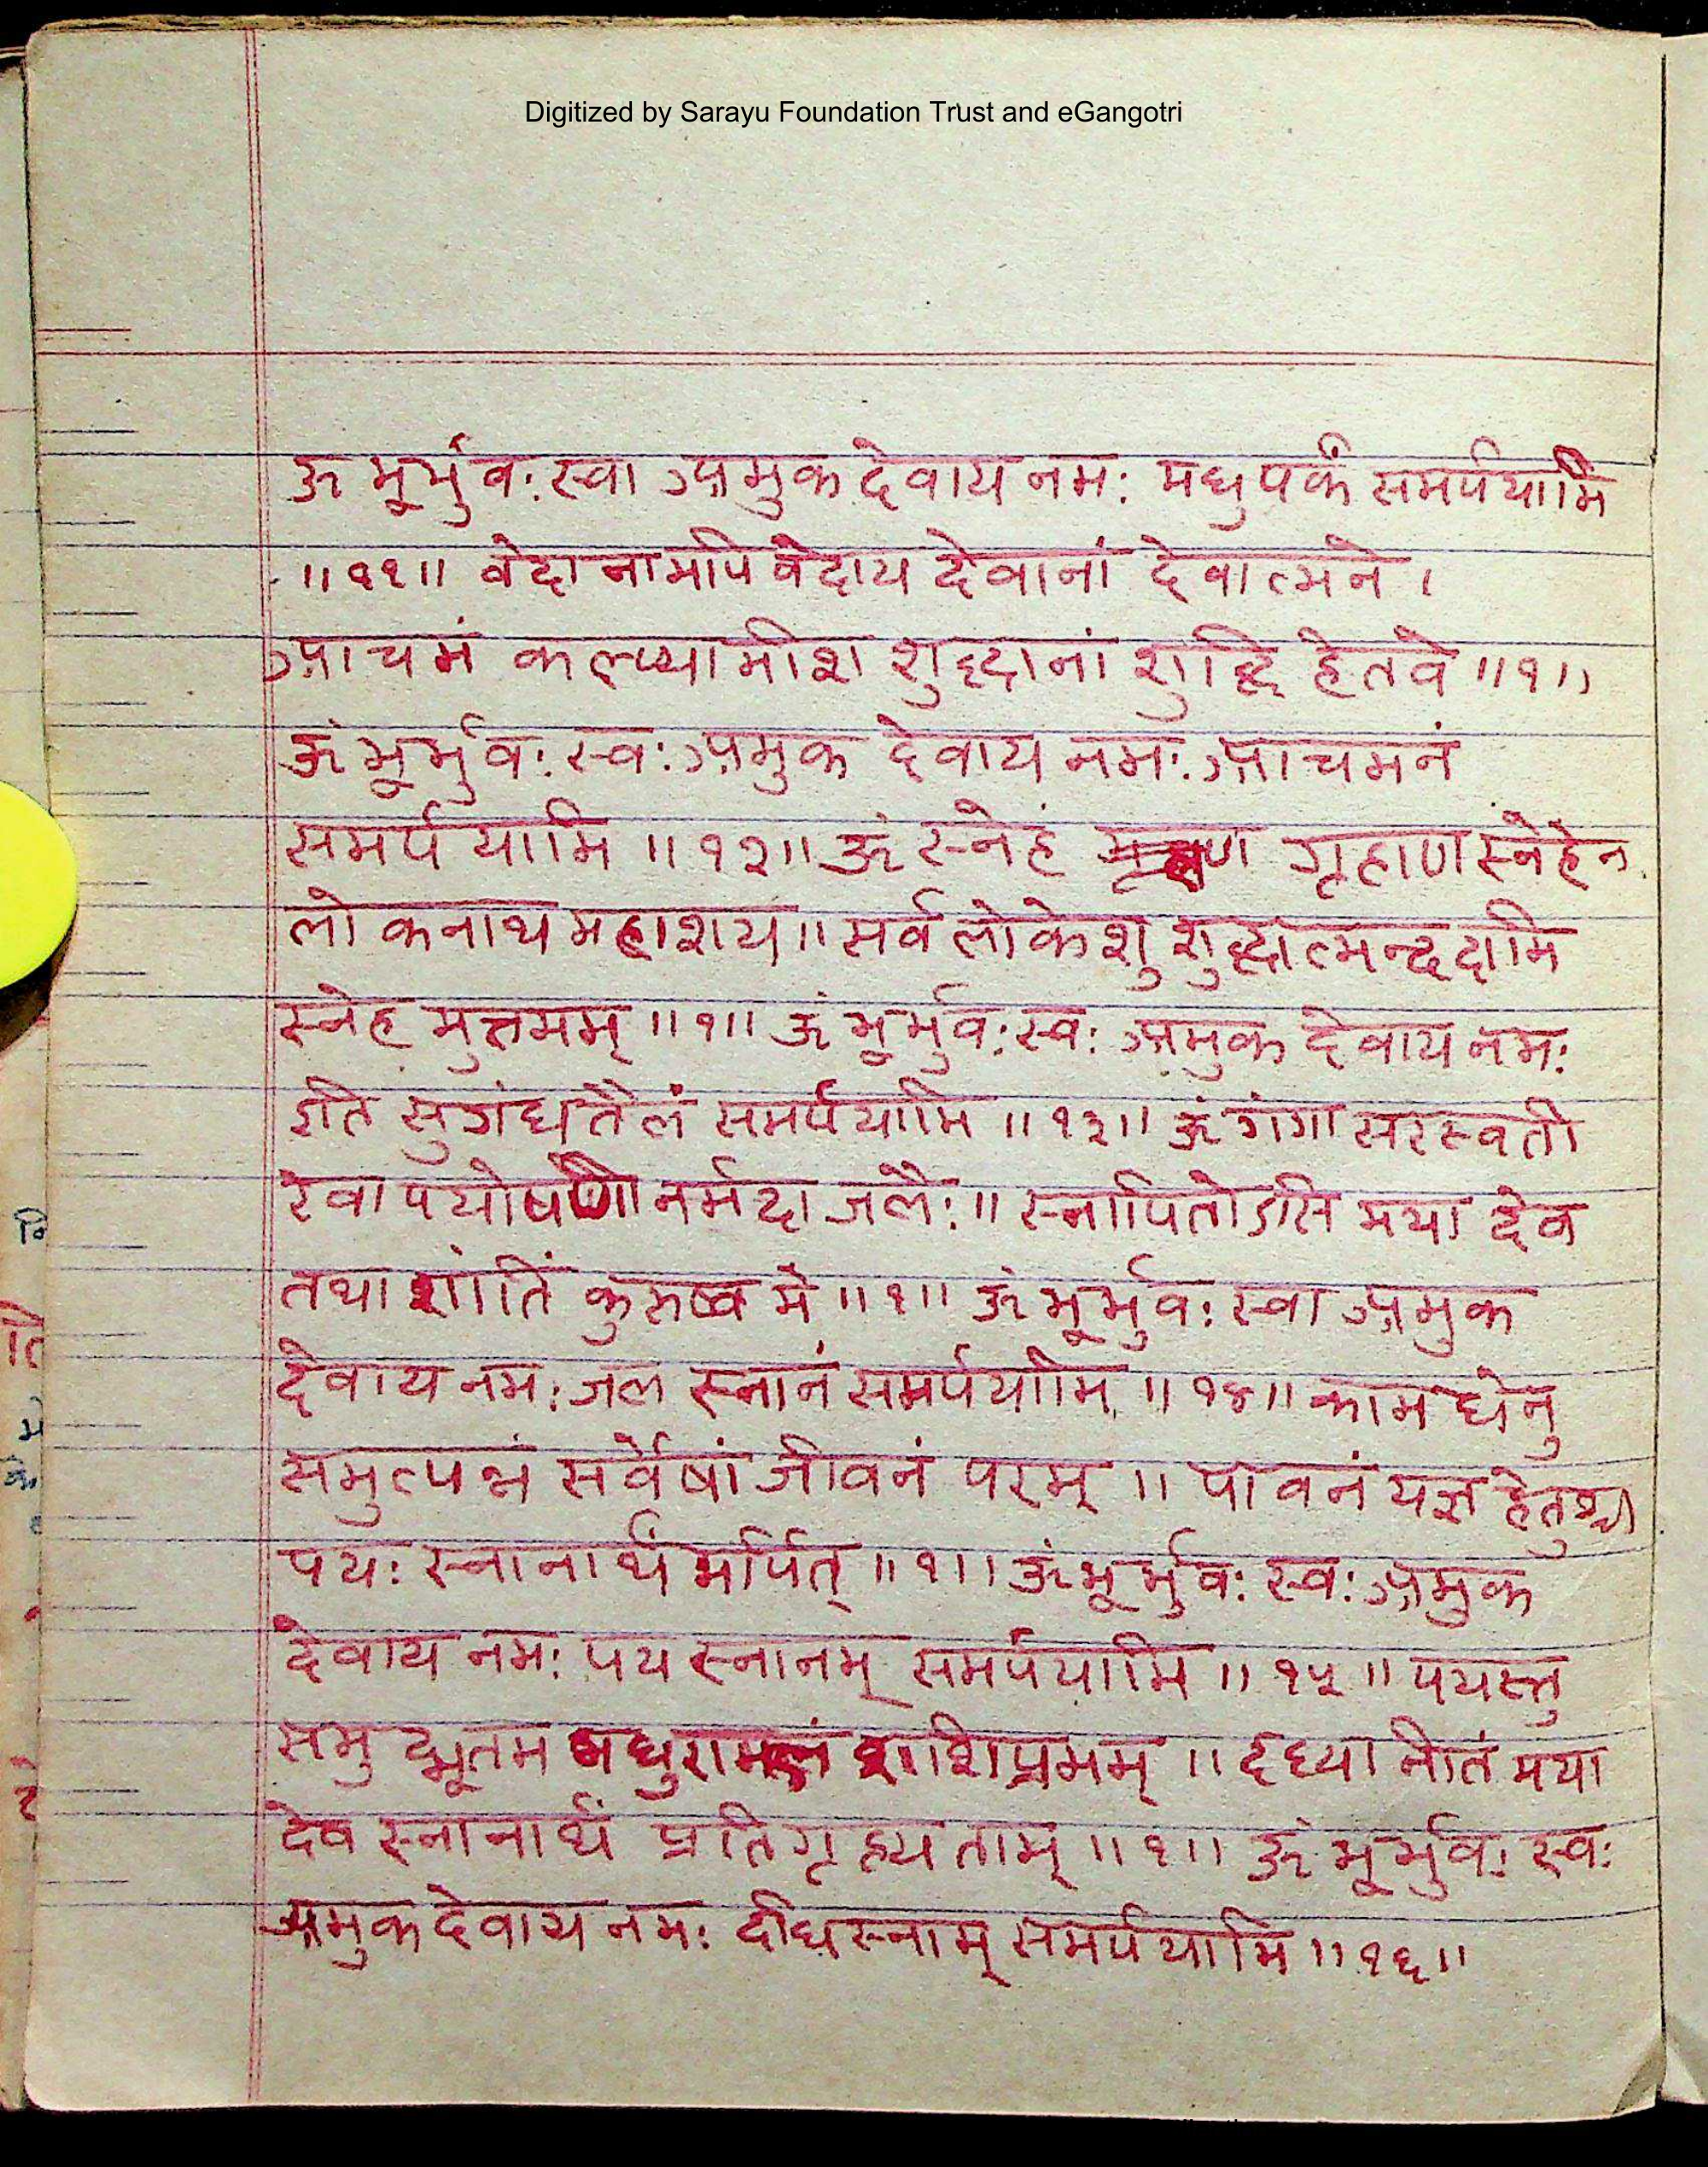 Digitized by Sarayu Foundation Trust and eGangotri
ऊ भूर्भुवः स्वा अमुक देवाय नमः मधुपर्कं समर्पयामि
॥११॥ वेदानामपि वेदाय देवानां देवात्मने ।
आचमं कल्प्यामीश शुद्धानां शुद्धि हेतवे ॥१॥
ॐ भूर्भुवः स्वः अमुक देवाय नमः आचमनं
समर्पयामि ॥१२॥ ॐ स्नेहं गृहाण स्नेहेन
लोकनाथ महाशय॥ सर्व लोकेशु शुद्धात्मन्ददामि
स्नेह मुत्तमम् ॥१॥ ॐ भूर्भुवः स्वः अमुक देवाय नमः
इति सुगंध तैलं समर्पयामि ॥१३॥ ॐ गंगा सरस्वती
रेवा पयोषणी नर्मदा जलैः॥ स्नापितोऽसि मया देव
तथा शांतिं कुरुष्व मे ॥१॥ ॐ भूर्भुवः स्वा अमुक
देवाय नमः जल स्नानं समर्पयामि ॥१४॥ कामधेनु
समुत्पन्नं सर्वेषां जीवनं परम् ॥ पावनं यज्ञ हेतुश्च
पयः स्नानार्थ मर्पित् ॥१॥ ॐ भूर्भुवः स्वः अमुक
देवाय नमः पय स्नानम् समर्पयामि ॥१५॥ पयस्तु
समुद्भूतम मधुराम्लं शशिप्रभम् ॥ दध्या नीतं मया
देव स्नानार्थं प्रतिगृह्यताम् ॥१॥ ॐ भूर्भुवः स्वः
अमुक देवाय नमः दधि स्नाम् समर्पयामि ॥१६॥